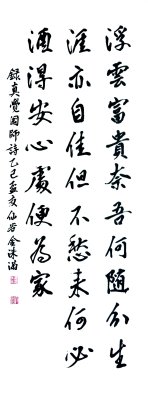 浮雲富貴奈吾何隨分生
涯亦自佳但不愁来何必
酒得安心處便為家
錄真覺國師詩乙巳孟夏仙谷金